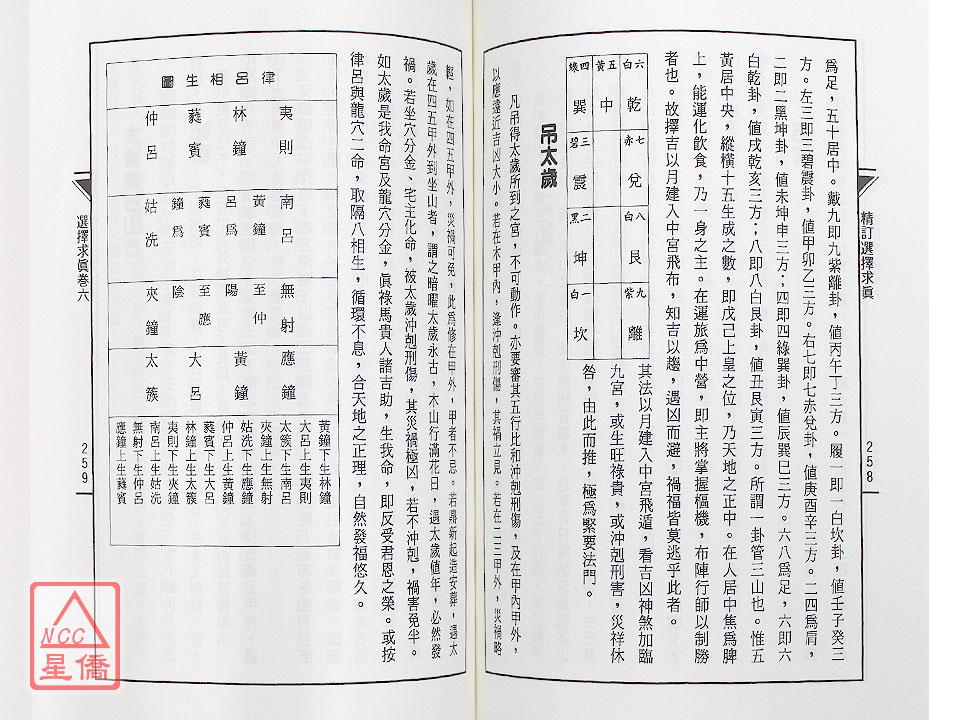 精訂選擇求眞
258
爲足，五十居中。戴九即九紫離卦，値丙午丁三方。履一即一白坎卦，値壬子癸三
方。左三即三碧震卦，値甲卯乙三方。右七即七赤兌卦，値庚酉辛三方。二四爲肩，
二即二黑坤卦，値未坤申三方；四即四綠巽卦，値辰巽巳三方。六八爲足，六即六
白乾卦，値戌乾亥三方；八即八白艮卦，値丑艮寅三方。所謂一卦管三山也。惟五
黃居中央，縱橫十五生成之數，即戊己上皇之位，乃天地之正中。在人居中焦爲脾
上，能運化飲食，乃一身之主。在運旅爲中營，即主將掌握樞機，布陣行師以制勝
者也。故擇吉以月建入中宮飛布，知吉以趨，遇凶而避，禍福皆莫逃乎此者。
其法以月建入中宮飛遁，看吉凶神煞加臨
九宮，或生旺祿貴，或沖剋刑害，災祥休
咎，由此而推，極爲緊要法門。
六白 乾 七赤 兌 八白 艮 九紫 離
五黃 中
四綠 巽 三碧 震 二黑 坤 一白 坎
吊太歲
凡吊得太歲所到之宮，不可動作。亦要審其五行比和沖剋刑傷，及在甲內甲外，
以應遠近吉凶大小。若在木甲內，逢沖剋刑傷，其禍立見。若在二三甲外，災禍略
輕，如在四五甲外，災禍可免，此爲修在甲外，甲者不忌。若鼎新起造安葬，遇太
歲在四五甲外到坐山者，謂之暗曜太歲永古，木山行滿花日，遇太歲値年，必然發
禍。若坐穴分金、宅主化命，被太歲沖剋刑傷，其災禍極凶，若不沖剋，禍害免半。
如太歲是我命宮及龍穴分金，眞祿馬貴人諸吉助，生我命，即反受君恩之榮。或按
律呂與龍穴二命，取隔八相生，循環不息，合天地之正理，自然發福悠久。
律呂相生圖
夷則 南呂 無射 應鐘
林鐘 黃鐘爲 至仲 黃鐘
蕤賓 呂蕤賓 陽至應 大呂
仲呂 鐘爲 陰 太簇
姑洗 夾鐘
黃鐘下生林鐘
大呂上生夷則
太簇下生南呂
夾鐘上生無射
姑洗下生應鐘
仲呂上生黃鐘
蕤賓下生大呂
林鐘上生太簇
夷則下生夾鐘
南呂上生姑洗
無射下生仲呂
應鐘上生蕤賓
選擇求眞卷六
259
NCC
星僑